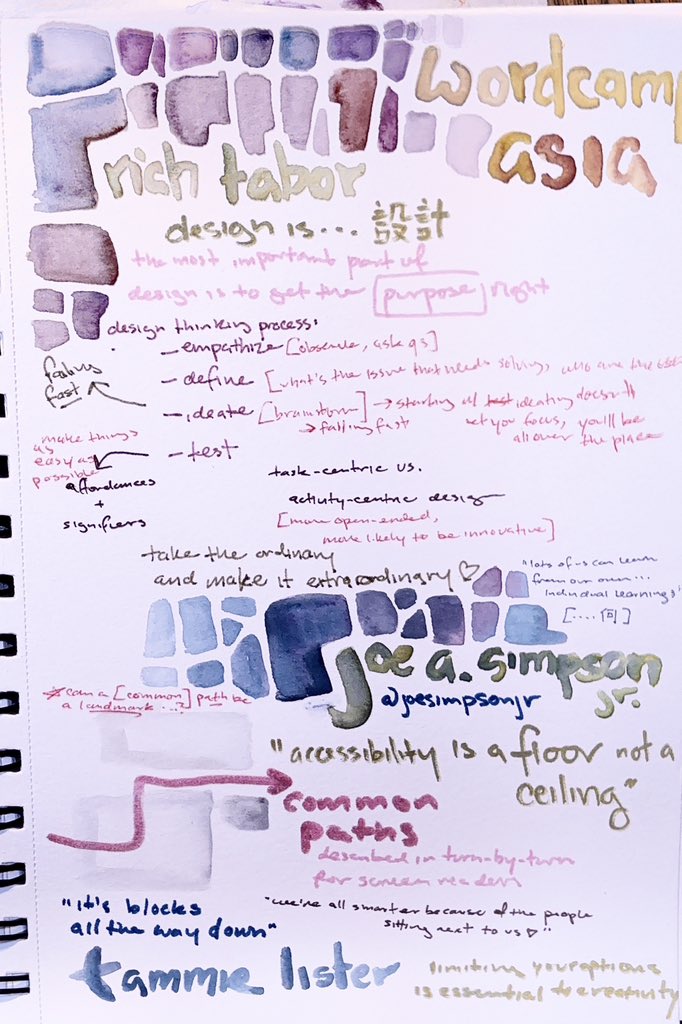 wordcamp
asia
rich tabor
design is... 設計
the most important part of
design is to get the purpose right
design thinking process:
- empathize [observe, ask qs]
- define [what's the issue that needs solving, who are the
fast
- ideate [brainstorm] → starting w/ ideating doesn't
→ failing fast
let you focus, you'll be
all over the place
- test
make things
as
easy as
possible
affordances
+
signifiers
task-centric vs.
activity-centric design
[more open-ended,
more likely to be innovative]
take the ordinary
and make it extraordinary ♡
"lots of us can learn
from our own...
individual learnings"
[.... 同]
joe a. simpson
jr.
@joesimpsonjr
* can a [common] path be
a landmark...?
"accessibility is a floor not a
ceiling"
common
paths
described in turn-by-turn
for screen readers
"it's blocks
all the way down"
"we're all smarter because of the people
sitting next to us ♡"
tammie lister
limiting your options
is essential to creativity